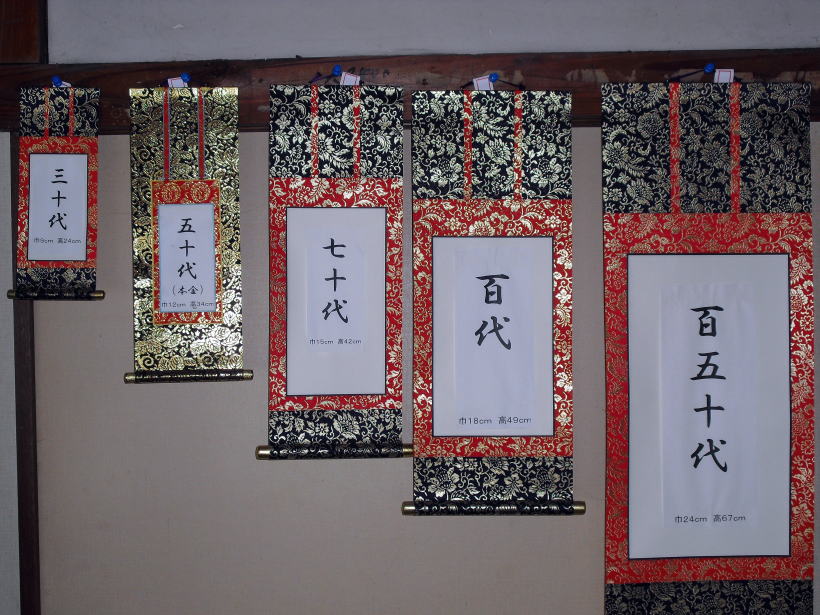 三十代
巾9cm 高24cm
五十代
(本金)
巾12cm 高34cm
七十代
巾15cm 高42cm
百代
巾18cm 高49cm
百五十代
巾24cm 高67cm